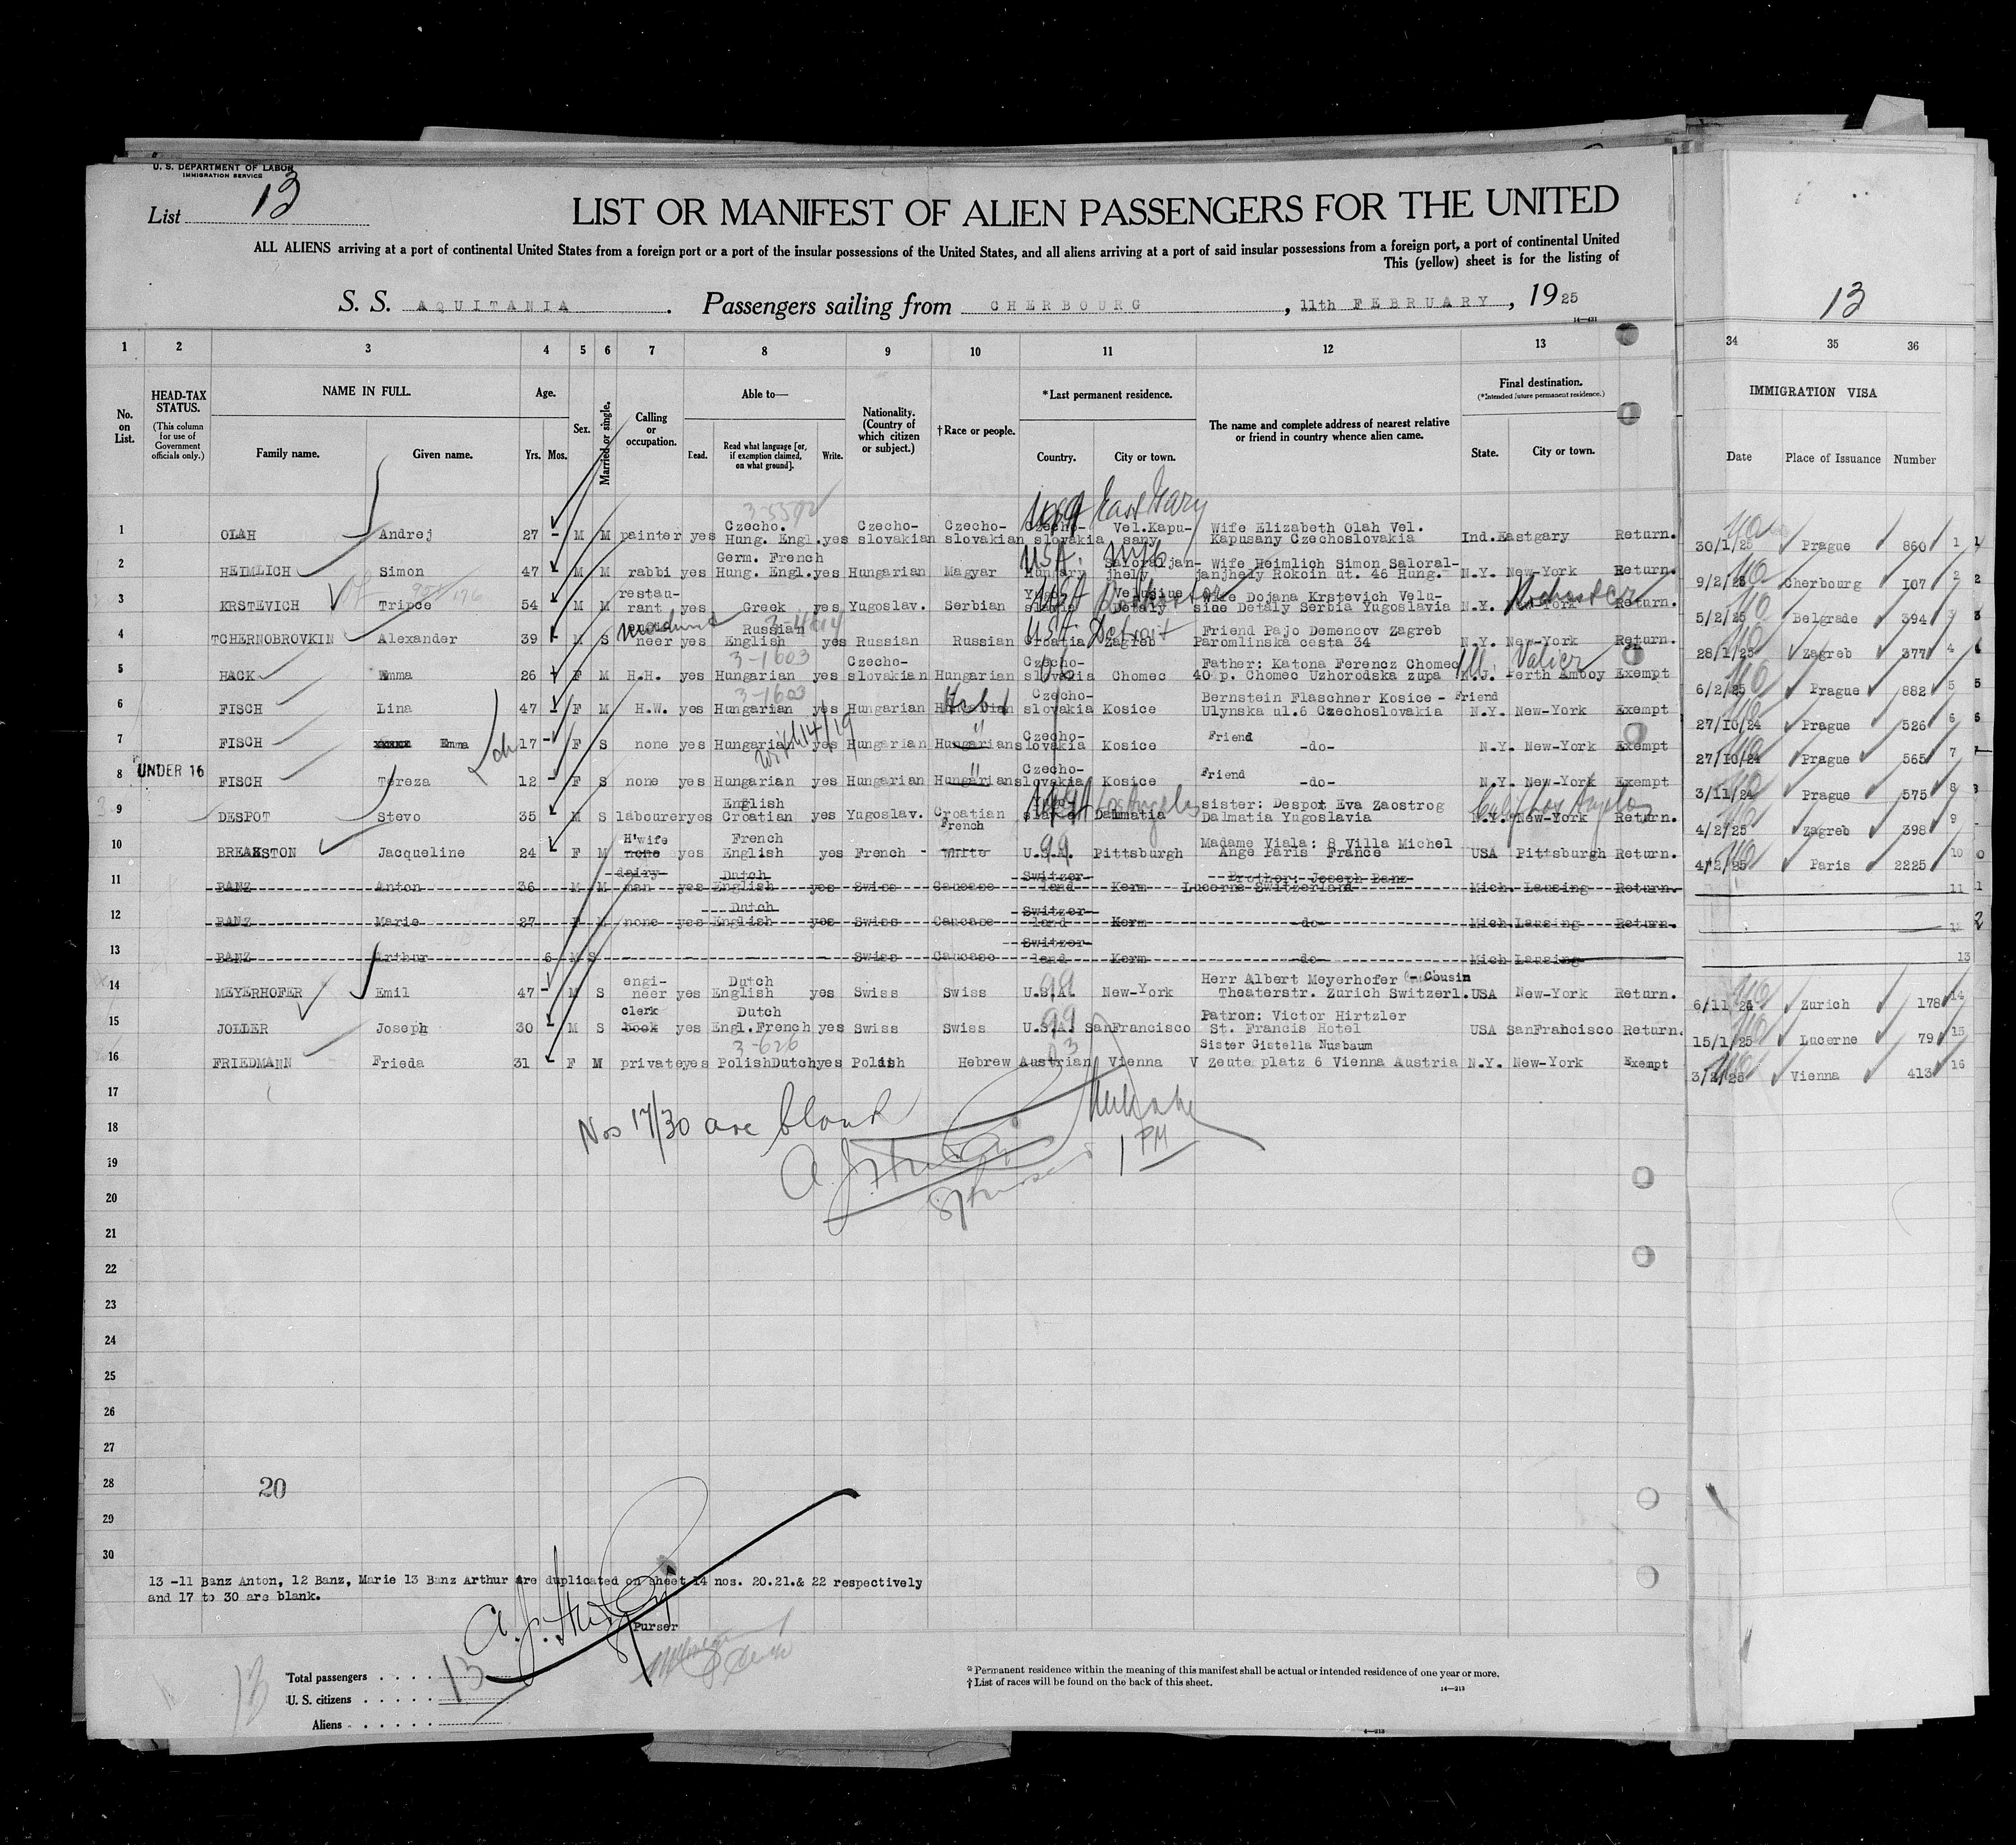 U. S. DEPARTMENT OF LABOR
IMMIGRATION SERVICE
List 13
LIST OR MANIFEST OF ALIEN PASSENGERS FOR THE UNITED
ALL ALIENS arriving at a port of continental United States from a foreign port or a port of the insular possessions of the United States, and all aliens arriving at a port of said insular possessions from a foreign port, a port of continental United
This (yellow) sheet is for the listing of
S. S. AQUITANIA. Passengers sailing from CHERBOURG, 11th FEBRUARY, 1925
14—431
13
1 2 3 4 5 6 7 8 9 10 11 12 13 34 35 36
No. on List.
HEAD-TAX STATUS. (This column for use of Government officials only.)
NAME IN FULL. Family name. Given name.
Age. Yrs. Mos.
Sex.
Married or single.
Calling or occupation.
Able to— Read. Read what language [or, if exemption claimed, on what ground]. Write.
Nationality. (Country of which citizen or subject.)
† Race or people.
*Last permanent residence. Country. City or town.
The name and complete address of nearest relative or friend in country whence alien came.
Final destination. (*Intended future permanent residence.) State. City or town.
IMMIGRATION VISA
Date Place of Issuance Number
3-5572 USA East Gary
1 OLAH Andrej 27 - M M painter yes Czecho. Hung. Engl. yes Czecho-slovakian Czecho-slovakian Czecho-slovakia Vel.Kapu-sany Wife Elizabeth Olah Vel. Kapusany Czechoslovakia Ind. Eastgary Return. 30/1/25 Prague 860 1
2 HEIMLICH Simon 47 - M M rabbi yes Germ. French Hung. Engl. yes Hungarian Magyar USA. Hungary Saloraljan-jhely Wife Heimlich Simon Saloral-janjhely Rokoin ut. 46 Hung. N.Y. New-York Return. 9/2/25 Cherbourg 107 2
3 KRSTEVICH Tripce 54 - M M restau-rant yes Greek yes Yugoslav. Serbian Yugo-slavia Velusine Detaly Wife Dojana Krstevich Velu-sine Detaly Serbia Yugoslavia N.Y. New-York Rochester Return. 5/2/25 Belgrade 394 3
4 TCHERNOBROVKIN Alexander 39 - M S engi-neer yes Russian English yes Russian Russian USA Croatia Detroit Zagreb Friend Pajo Demencov Zagreb Paromlinska cesta 34 N.Y. New-York Return. 28/1/25 Zagreb 377 4
3-1603
5 HACK Emma 26 - F M H.H. yes Hungarian yes Czecho-slovakian Hungarian Czecho-slovakia Chomec Father: Katona Ferencz Chomec 40 p. Chomec Uzhorodska zupa Ill. Valier N.J. Perth Amboy Exempt 6/2/25 Prague 882 5
3-1603
6 FISCH Lina 47 - F M H.W. yes Hungarian yes Hungarian Hungarian Czecho-slovakia Kosice Bernstein Flaschner Kosice - Friend Ulynska ul.6 Czechoslovakia N.Y. New-York Exempt 27/10/24 Prague 526 6
7 FISCH Emma 17 - F S none yes Hungarian yes Hungarian Hungarian Czecho-slovakia Kosice Friend -do- N.Y. New-York Exempt 27/10/24 Prague 565 7
8 UNDER 16 FISCH Tereza 12 - F S none yes Hungarian yes Hungarian Hungarian Czecho-slovakia Kosice Friend -do- N.Y. New-York Exempt 3/11/24 Prague 575 8
9 DESPOT Stevo 35 M S labourer yes English Croatian yes Yugoslav. Croatian USA Los Angeles Dalmatia sister: Despot Eva Zaostrog Dalmatia Yugoslavia Calif Los Angeles N.Y. New-York Return. 4/2/25 Zagreb 398 9
10 BREAKSTON Jacqueline 24 - F M H'wife none yes French English yes French - French White U.S.A. Pittsburgh Madame Viala: 8 Villa Michel Ange Paris France USA Pittsburgh Return. 4/2/25 Paris 2225 10
11 BANZ Anton 36 M M dairy-man yes Dutch English yes Swiss Caucase Switzer-land Kerm Brother: Joseph Banz Lucerne Switzerland Mich. Lansing Return. 11
12 BANZ Marie 27 F M none yes Dutch English yes Swiss Caucase Switzer-land Kerm -do- Mich. Lansing Return. 12
13 BANZ Arthur 6 M S - - - - Swiss Caucase Switzer-land Kerm -do- Mich Lansing 13
14 MEYERHOFER Emil 47 - M S engi-neer yes Dutch English yes Swiss Swiss U.S.A. New-York Herr Albert Meyerhofer - Cousin Theaterstr. Zurich Switzerl. USA New-York Return. 6/11/26 Zurich 178 14
15 JOLLER Joseph 30 - M S clerk book yes Dutch Engl. French yes Swiss Swiss U.S.A. SanFrancisco Patron: Victor Hirtzler St. Francis Hotel USA SanFrancisco Return. 15/1/25 Lucerne 79 15
3-626
16 FRIEDMANN Frieda 31 - F M private yes Polish Dutch yes Polish Hebrew Austrian Vienna Sister Gistella Nusbaum V Zeute platz 6 Vienna Austria N.Y. New-York Exempt 3/2/25 Vienna 413 16
17
Nos 17/30 are blank
18
1 PM
19
20
21
22
23
24
25
26
27
28 20
29
30
13 -11 Banz Anton, 12 Banz, Marie 13 Banz Arthur are duplicated on sheet 14 nos. 20.21.& 22 respectively
and 17 to 30 are blank.
Purser
Total passengers . . . . 13
U. S. citizens . . . . .
Aliens . . . . . .
13
* Permanent residence within the meaning of this manifest shall be actual or intended residence of one year or more.
† List of races will be found on the back of this sheet.
14—213